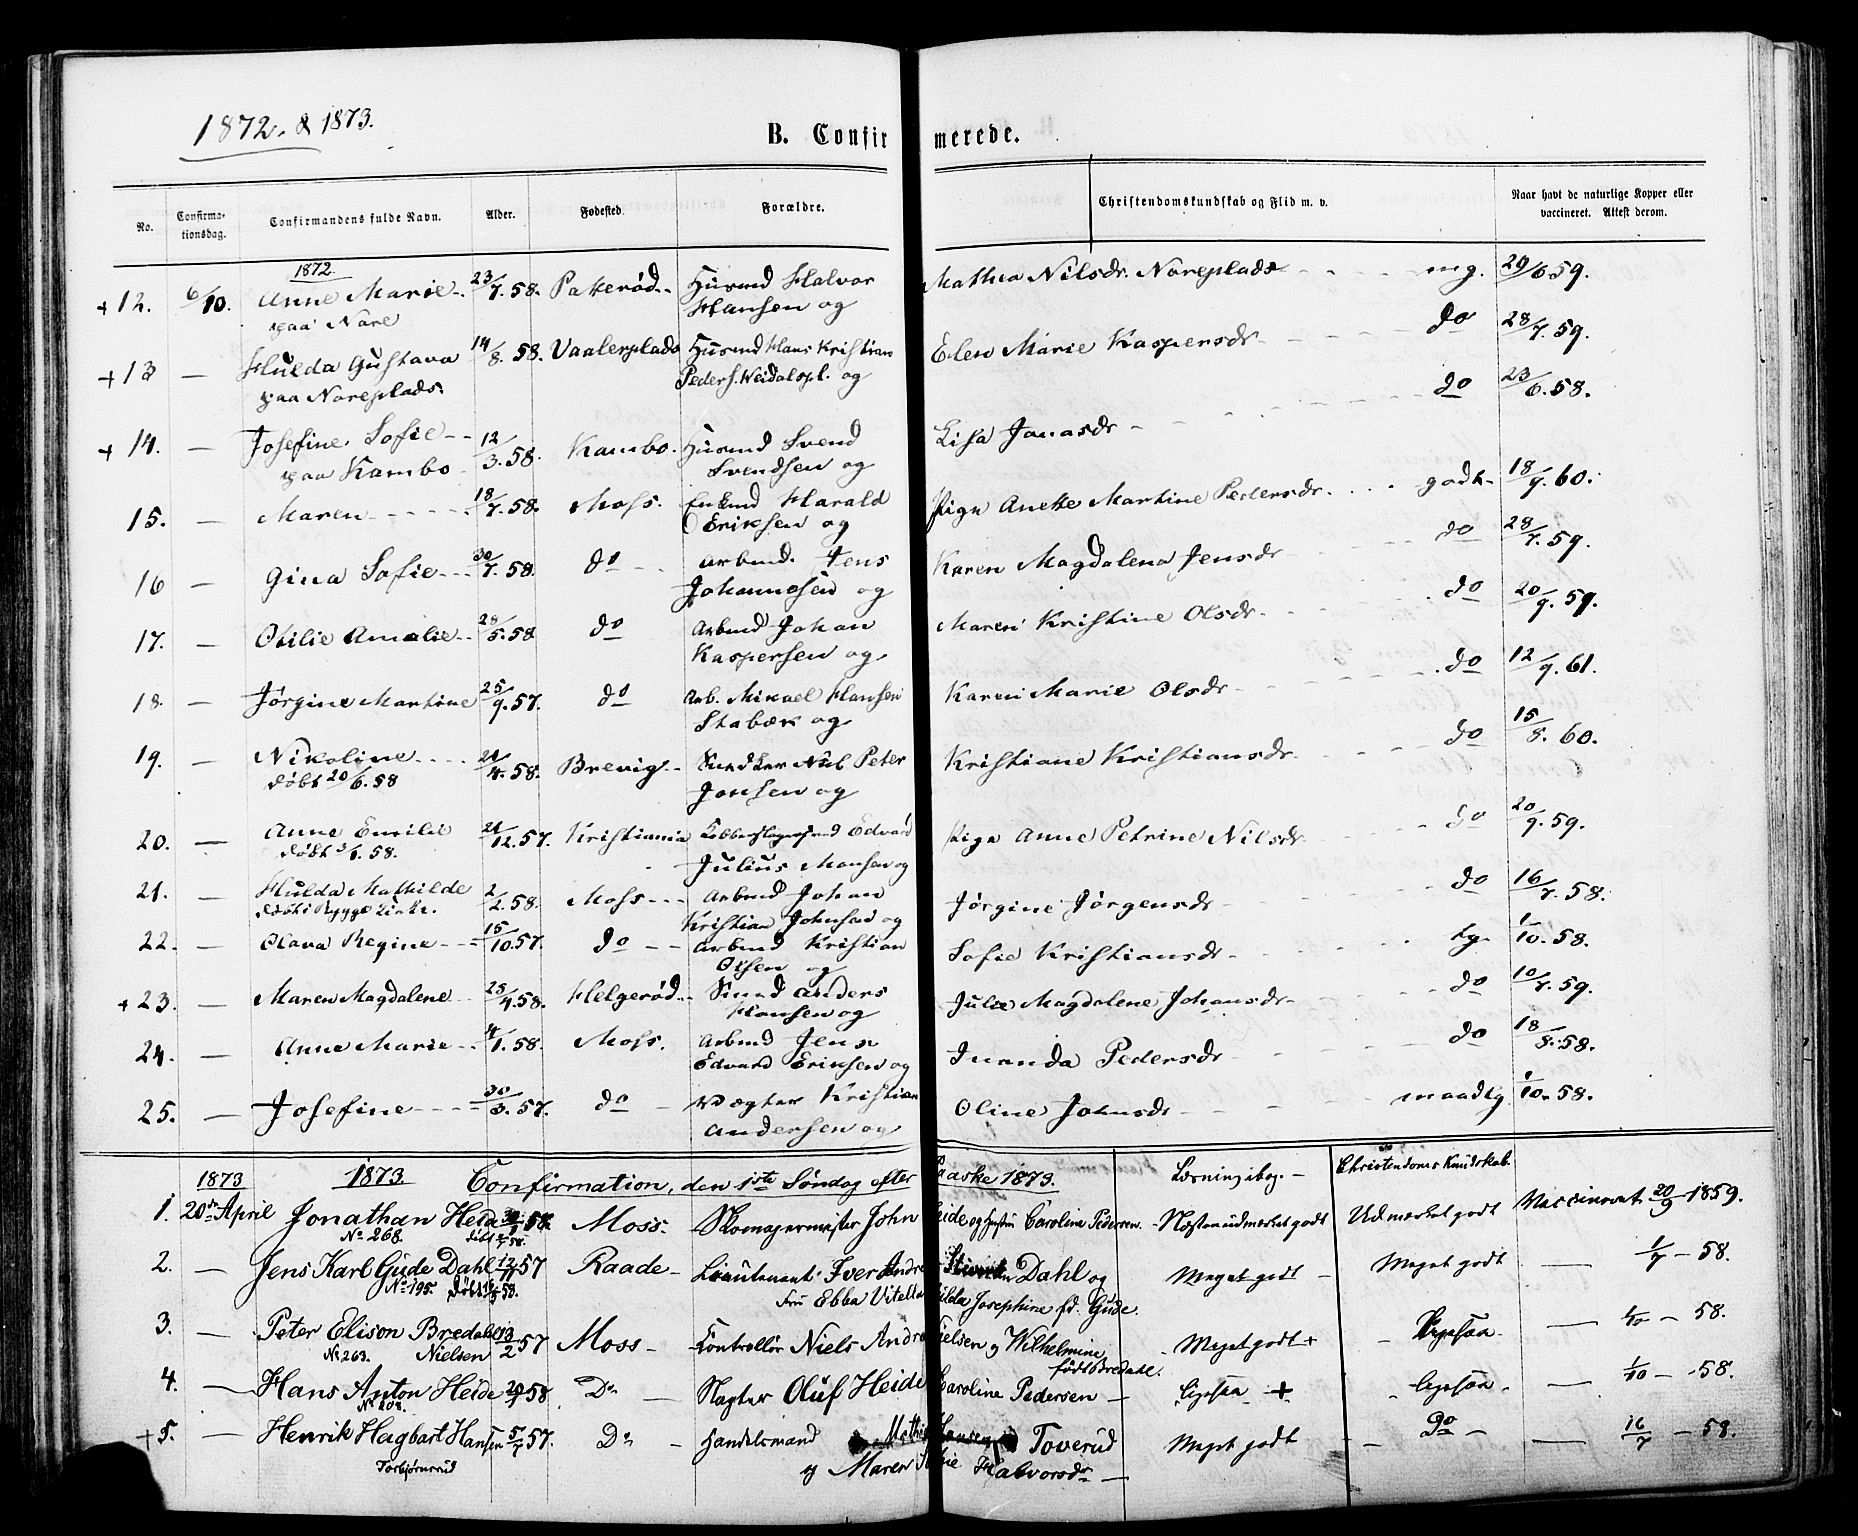 1872. & 1873.
B. Confirmerede.
No.
Confirmationsdag.
Confirmandens fulde Navn.
Alder.
Fødested.
Forældre.
Christendomskundskab og Flid m. v.
Naar havt de naturlige Kopper eller vaccineret. Attest derom.
1872.
+12. 6/10. Anne Marie 23/7.58. Pakerød Husmd Halvor Mathea Nilsdr. Noreplads mg. 29/6 59.
paa Nore Hansen og
+13 — Hulda Gustava 14/8.58. Vaalerplads Husmd Hans Kristian Elen Marie Kaspersdr do 28/7.59.
paa Noreplads. Peders. Weidalspl. og
+14. — Josefine Sofie 12/3.58. Kambo. Husmd Svend Lisa Jonasdr do 23/6.58.
paa Kambo Svendsen og
15. — Maren 18/7.58. Moss. Harald Pige Anette Martine Pedersdr. godt 18/9.60.
Eriksen og
16 — Gina Sofie 30/7.58. do Arbmd. Jens Karen Magdalena Jensdr do 28/7.59.
Johannesen og
17. — Otilie Amalie 28/5.58 do Arbmd Johan Maren Kristine Olsdr do 20/9.59.
Kaspersen og
18. — Jørgine Martine 25/9.57. do Arb. Mikael Hansen Karen Marie Olsdr do 12/9.61.
Stabæk og
19. — Nikoline 21/4.58. Brevig Peter Kristiane Kristiansdr do 15/8.60.
døbt 20/6.58 Jonsen og
20. — Anne Emilie 21/12.57. Kristiania Kobberslagersvnd Edvard Pige Anne Petrine Nilsdr do 20/9.59.
døbt 3/1.58. Julius Monsen og
21. — Hulda Mathilde 2/2.58. Moss Arbmd Johan Jørgine Jørgensdr do 16/7.58.
døbt i Rygge Kirke. Kristian Johnsen og
22. — Olava Regine 15/10.57. do Arbmd Kristian Sofie Kristiansdr tg. 1/10.58.
Olsen og
+23. — Maren Magdalene 25/4.58. Helgerød Smed Anders Julie Magdalene Johansdr do 10/7.59.
Hansen og
24. — Anne Marie 4/1.58. Moss. Arbmd Jens Inanda Pedersdr do 18/8.58.
Edvard Eriksen og
25. — Josefine 30/3.57. do Vægter Kristian Oline Johnsdr maadlg 1/10.58.
Andersen og
1873 1873. Confirmation, den 1ste Søndag efter Paaske 1873. Læsning i bog. Christendoms Kundskab.
1. 20de April Jonathan Heide 58. Moss. Skomagermester John Heide og Hustru Caroline Pedersen. Næsten udmærket godt Udmærket godt Vaccineret 20/9 1859.
No. 268.
2. — Jens Karl Gude Dahl 12/11 57 Raade Lieutenant Iver Andre Dahl og Meget godt Meget godt — 1/7 - 58.
No. 195. Døbt Fru Ebba Vitella Hilda Josephine fd. Gude.
3. — Peter Elison Bredahl 13/2 57 Moss Kontrollør Niels Andre Nielsen og Wilhelmine Meget godt + Ligesaa — 1/10 - 58.
No. 263. Nielsen født Bredahl.
4. — Hans Anton Heide 58 Do Vagter Oluf Heide Caroline Pedersen Ligesaa + Ligesaa — 1/10 - 58.
+5. — Henrik Hagbart Hansen 5/7 57. Do Handelsmand Mathis Hansen Toverud Meget godt Do — 16/7 - 58.
Torbjørnrud og Maren Sofie Halvorsdr